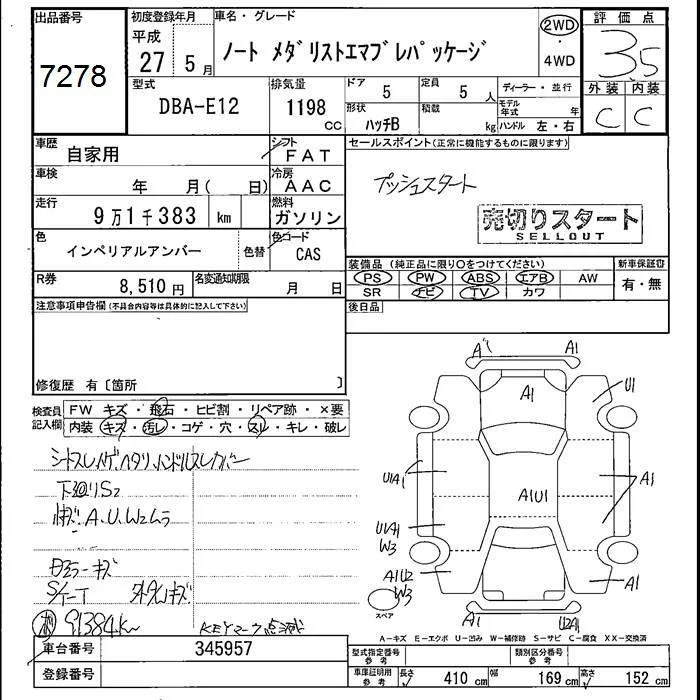 出品番号
7278
初度登録年月
平成
27 5 月
車名・グレード
ノート メダリストエマブレパッケージ
2WD
・
4WD
評価点
3.5
外装 内装
C C
型式
DBA-E12
排気量
1198
CC
ドア
5
定員
5 人
形状
ハッチB
積載
kg
ディーラー・並行
モデル年式 年
ハンドル 左・右
車歴
自家用
シフト
FAT
車検
年 月( 日)
冷房
AAC
走行
9万1千383 km
燃料
ガソリン
色
インペリアルアンバー
色替
色コード
CAS
R券
8,510 円
名変通知期限
月 日
セールスポイント(正常に機能するものに限ります)
プッシュスタート
売切りスタート
SELLOUT
装備品(純正品に限り○をつけてください)
PS PW ABS エアB AW
SR ナビ TV カワ
新車保証書
有・無
後日品
注意事項申告欄(不具合内容等は具体的に記入して下さい)
修復歴 有〔箇所 〕
検査員記入欄
FW キズ・飛石・ヒビ割・リペア跡・×要
内装 キズ・汚レ・コゲ・穴・スレ・キレ・破レ
シートスレ ハゲ ヘタリ ハンドルスレ カバー
下廻りS2
A.U.W2ムラ
キズ
91384k
KEYマーク点滅
A1
A1
A1
U1
U1A1
A1U1
A1
U1A1
W3
A1U2
W3
A1
A1
U2A1
スペア
A-キズ E-エクボ U-凹み W-補修跡 S-サビ C-腐食 XX-交換済
車台番号
345957
登録番号
型式指定番号
参考
類別区分番号
参考
車庫証明用
参考
長さ
410 cm
幅
169 cm
高さ
152 cm